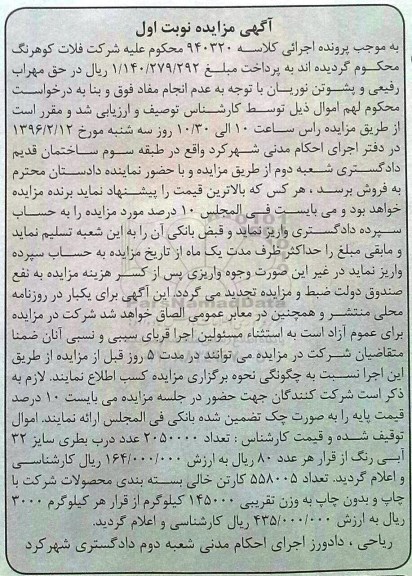 آگهی مزایده نوبت اول
به موجب پرونده اجرائی کلاسه ۹۴۰۳۲۰ محکوم علیه شرکت فلات کوهرنگ
محکوم گردیده اند به پرداخت مبلغ ۱/۱۴۰/۲۷۹/۲۹۲ ریال در حق مهراب
رفیعی و پشوتن نوریان با توجه به عدم انجام مفاد فوق و بنا به درخواست
محکوم لهم اموال ذیل توسط کارشناس توصیف و ارزیابی شد و مقرر است
از طریق مزایده راس ساعت ۱۰ الی ۱۰/۳۰ روز سه شنبه مورخ ۱۳۹۶/۲/۱۲
در دفتر اجرای احکام مدنی شهرکرد واقع در طبقه سوم ساختمان قدیم
دادگستری شعبه دوم از طریق مزایده و با حضور نماینده دادستان محترم
به فروش برسد ، هر کس که بالاترین قیمت را پیشنهاد نماید برنده مزایده
خواهد بود و می بایست فی المجلس ۱۰ درصد مورد مزایده را به حساب
سپرده دادگستری واریز نماید و قبض بانکی آن را به این شعبه تسلیم نماید
و مابقی مبلغ را حداکثر ظرف مدت یک ماه از تاریخ مزایده به حساب سپرده
واریز نماید در غیر این صورت وجوه واریزی پس از کسر هزینه مزایده به نفع
صندوق دولت ضبط و مزایده تجدید می گردد این آگهی برای یکبار در روزنامه
محلی منتشر و همچنین در معابر عمومی الصاق خواهد شد شرکت در مزایده
برای عموم آزاد است به استثناء مسئولین اجرا قربای سببی و نسبی آنان ضمنا
متقاضیان شرکت در مزایده می توانند در مدت ۵ روز قبل از مزایده از طریق
این اجرا نسبت به چگونگی نحوه برگزاری مزایده کسب اطلاع نمایند. لازم به
ذکر است شرکت کنندگان جهت حضور در جلسه مزایده می بایست ۱۰ درصد
قیمت پایه را به صورت چک تضمین شده بانکی فی المجلس ارائه نمایند. اموال
توقیف شده و قیمت کارشناس : تعداد ۲۰۵۰۰۰۰ عدد درب بطری سایز ۳۲
آبی رنگ از قرار هر عدد ۸۰ ریال به ارزش ۱۶۴/۰۰۰/۰۰۰ ریال کارشناسی
و اعلام گردید. تعداد ۵۵۸۰۰۵ کارتن خالی بسته بندی محصولات شرکت با
چاپ و بدون چاپ به وزن تقریبی ۱۴۵۰۰۰ کیلوگرم از قرار هر کیلوگرم ۳۰۰۰
ریال به ارزش ۴۳۵/۰۰۰/۰۰۰ ریال کارشناسی و اعلام گردید.
ریاحی ، دادورز اجرای احکام مدنی شعبه دوم دادگستری شهرکرد